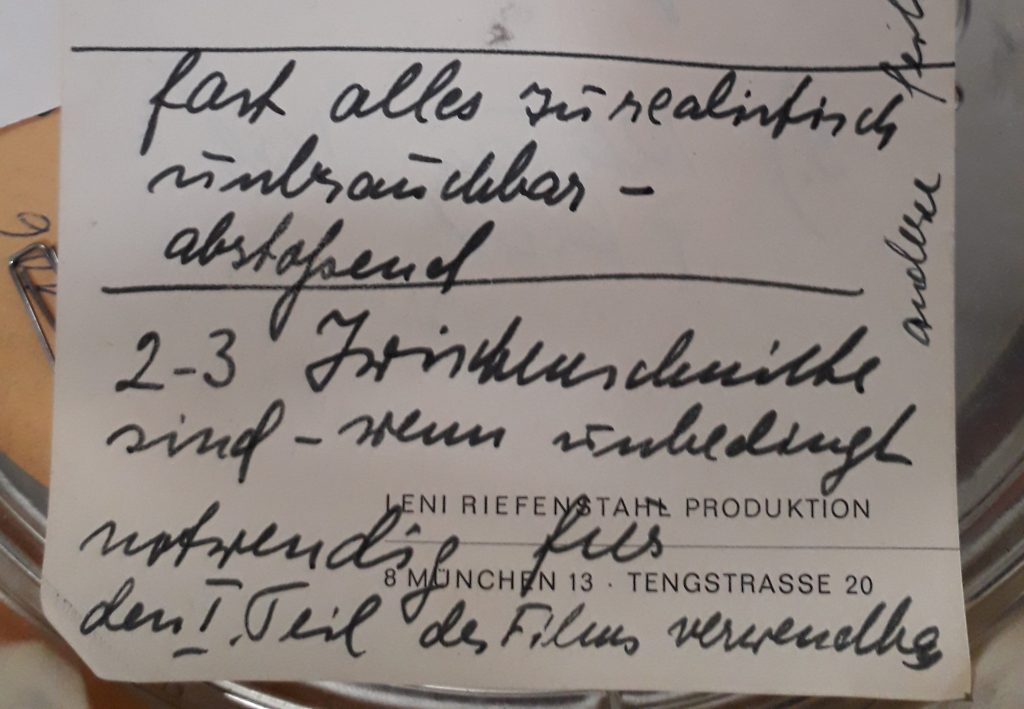 fast alles zu realistisch
unbrauchbar –
abstoßend
2-3 Zwischenschnitte
sind – wenn unbedingt
LENI RIEFENSTAHL PRODUKTION
notwendig für
8 MÜNCHEN 13 · TENGSTRASSE 20
den I. Teil des Films verwendbar
andere